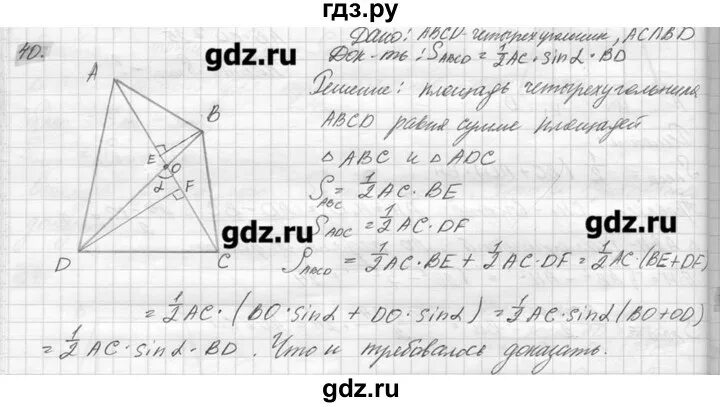 гдз.ру
40.
Дано: ABCD - четырехугольник, AC∩BD
Док-ть: S_ABCD = 1/2 AC · sinα · BD
gdz.ru
Решение: площадь четырехугольника
ABCD равна сумме площадей
△ABC и △ADC
S_ABC = 1/2 AC · BE
S_ADC = 1/2 AC · DF
gdz.ru
gdz.ru
S_ABCD = 1/2 AC · BE + 1/2 AC · DF = 1/2 AC · (BE+DF)
= 1/2 AC · (BO · sinα + DO · sinα) = 1/2 AC · sinα (BO+OD)
= 1/2 AC · sinα · BD. Что и требовалось доказать.
A
B
E
O
α
F
D
C
gdz.ru